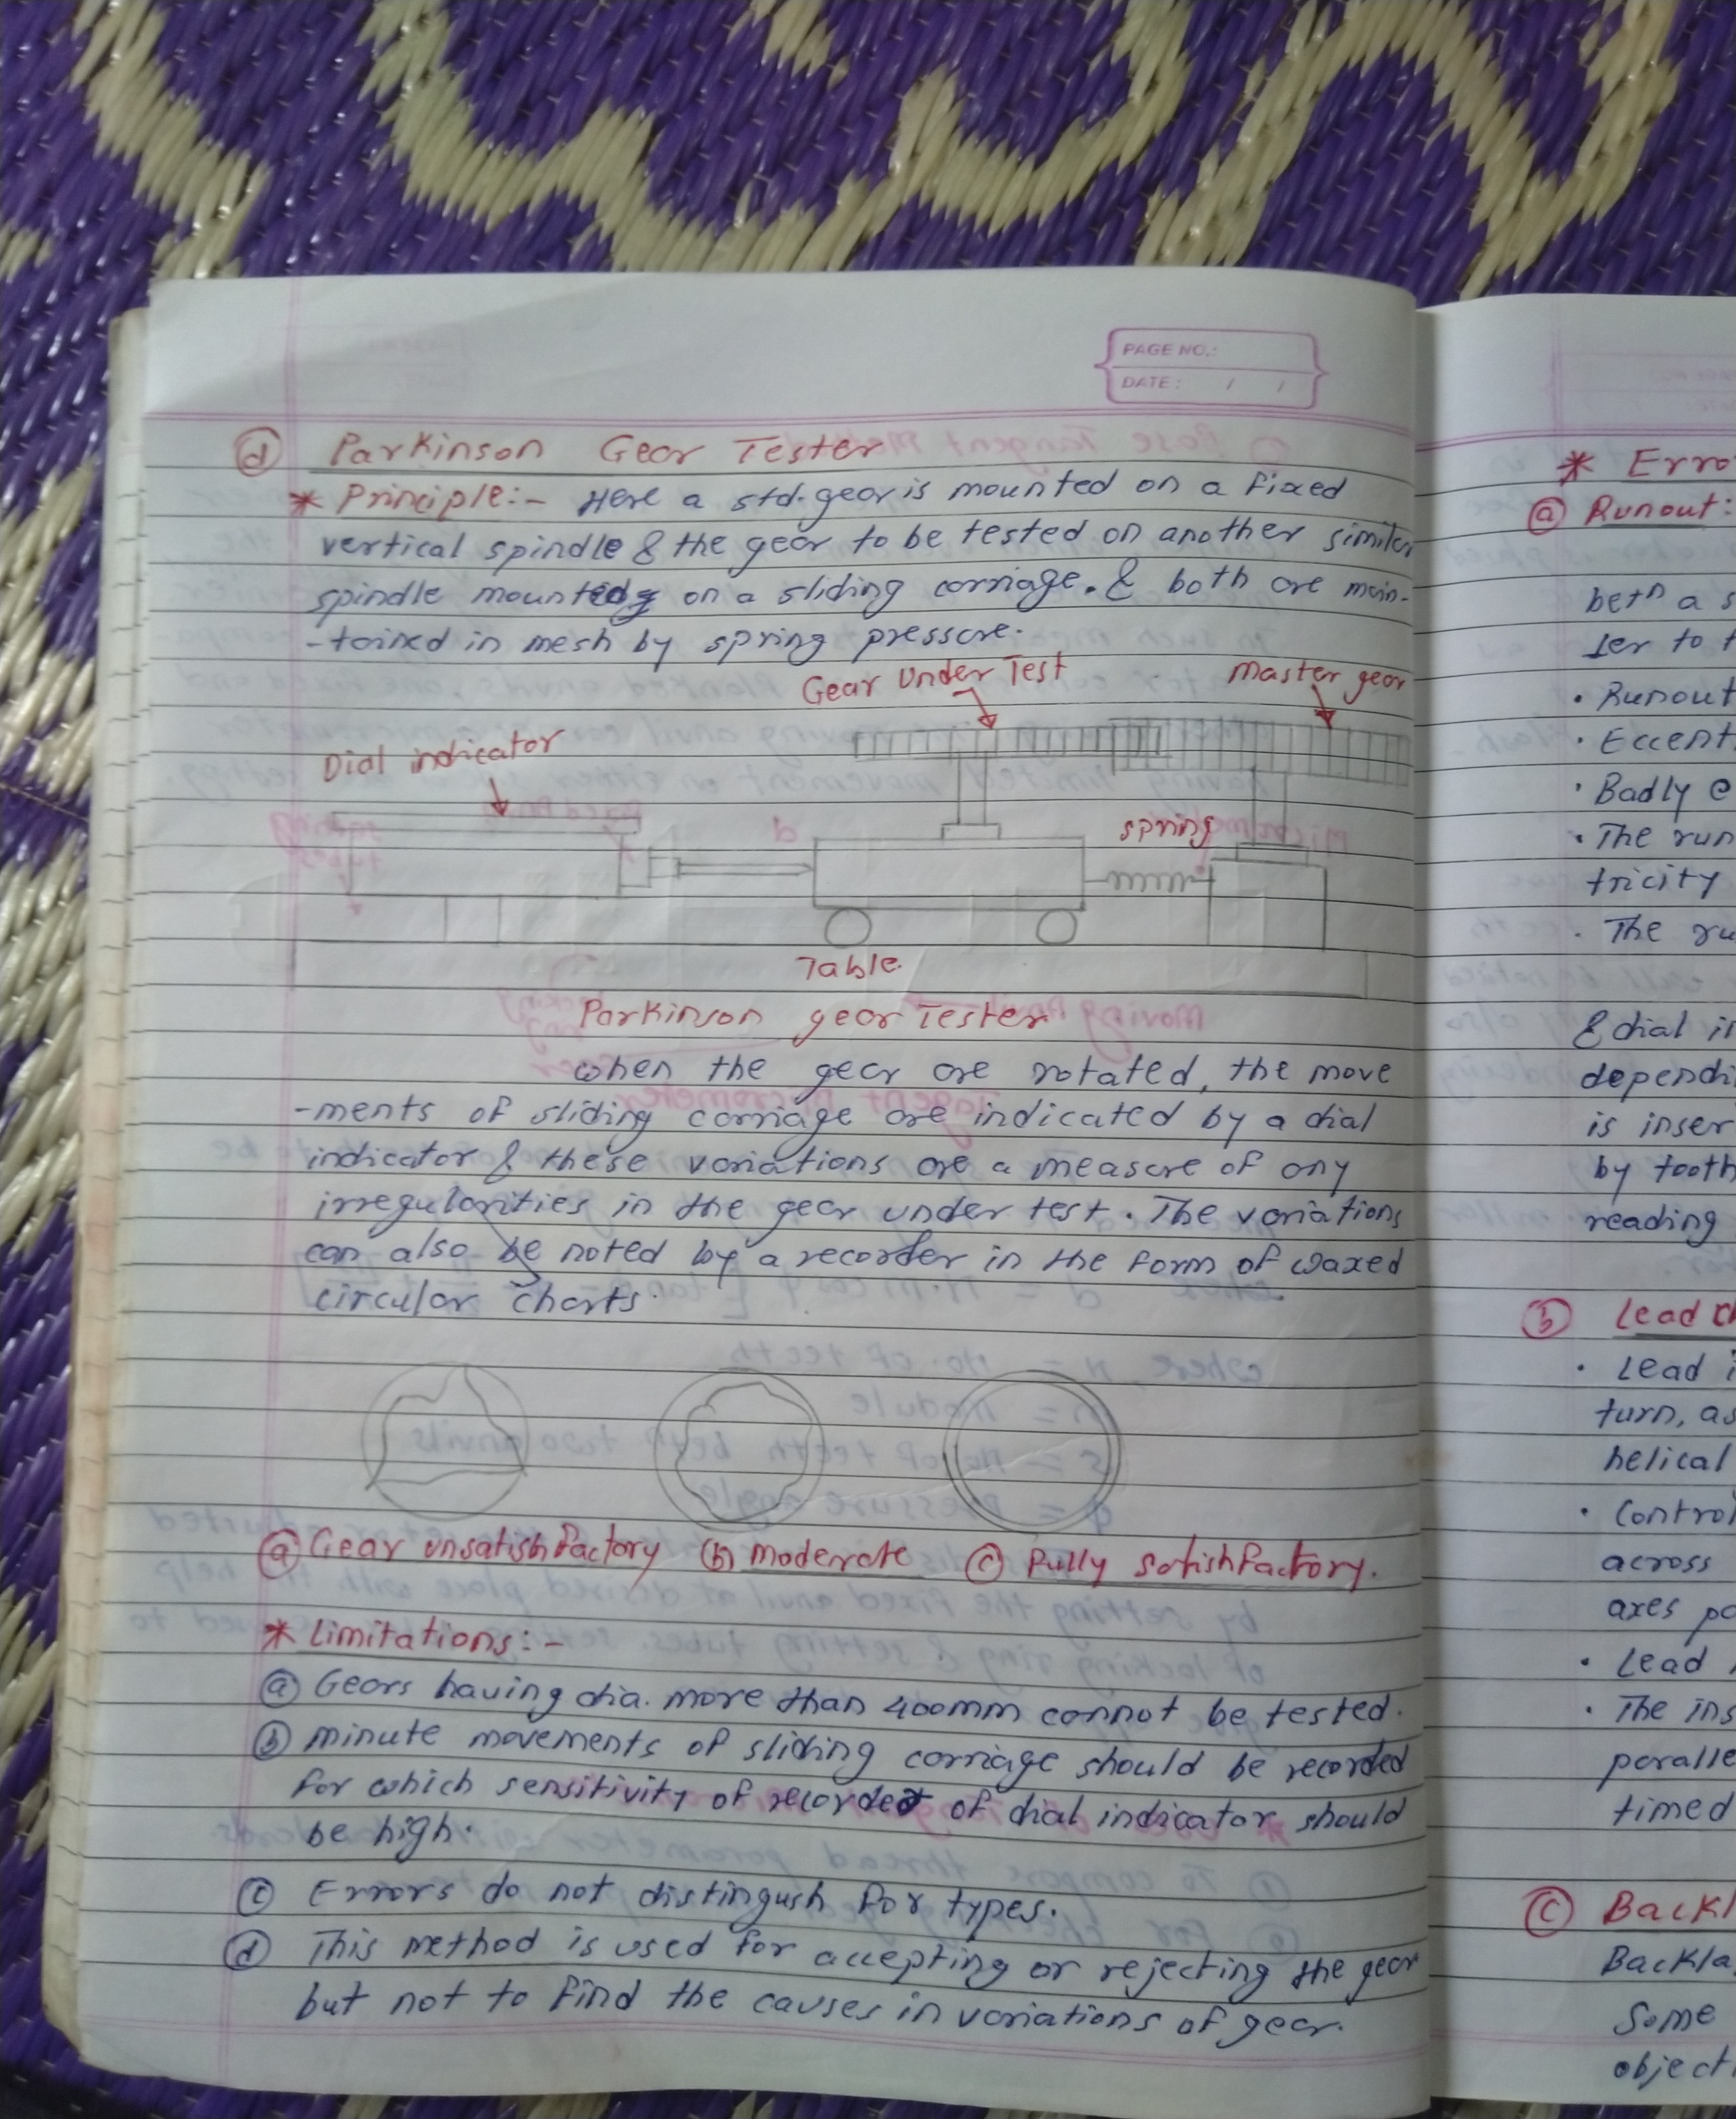 PAGE NO.:
DATE: / /
(d) Parkinson Gear Tester
* Principle:- Here a std. gear is mounted on a fixed
vertical spindle & the gear to be tested on another similar
spindle mounted on a sliding carriage. & both are main-
-tained in mesh by spring pressure.
Gear Under Test
Master gear
Dial indicator
spring
Table
Parkinson gear Tester
when the gear are rotated, the move
-ments of sliding carriage are indicated by a dial
indicator & these variations are a measure of any
irregularities in the gear under test. The variations
can also be noted by a recorder in the form of waxed
circular charts.
(a) Gear unsatishfactory (b) Moderate (c) Fully satishfactory.
* Limitations:-
(a) Gears having dia. more than 400mm cannot be tested.
(b) minute movements of sliding carriage should be recorded
for which sensitivity of recorded of dial indicator should
be high.
(c) Errors do not distingush for types.
(d) This method is used for accepting or rejecting the gear
but not to find the causes in variations of gear.
* Erro
(a) Runout:
betn a s
ler to t
• Runout
• Eccent
• Badly
• The run
tricity
• The ru
& dial i
dependi
is inser
by tooth
reading
(b) Lead
• Lead
turn, as
helical
• Contro
across
axes pa
• Lead
• The ins
paralle
timed
(c) Backl
Backla
Some
object